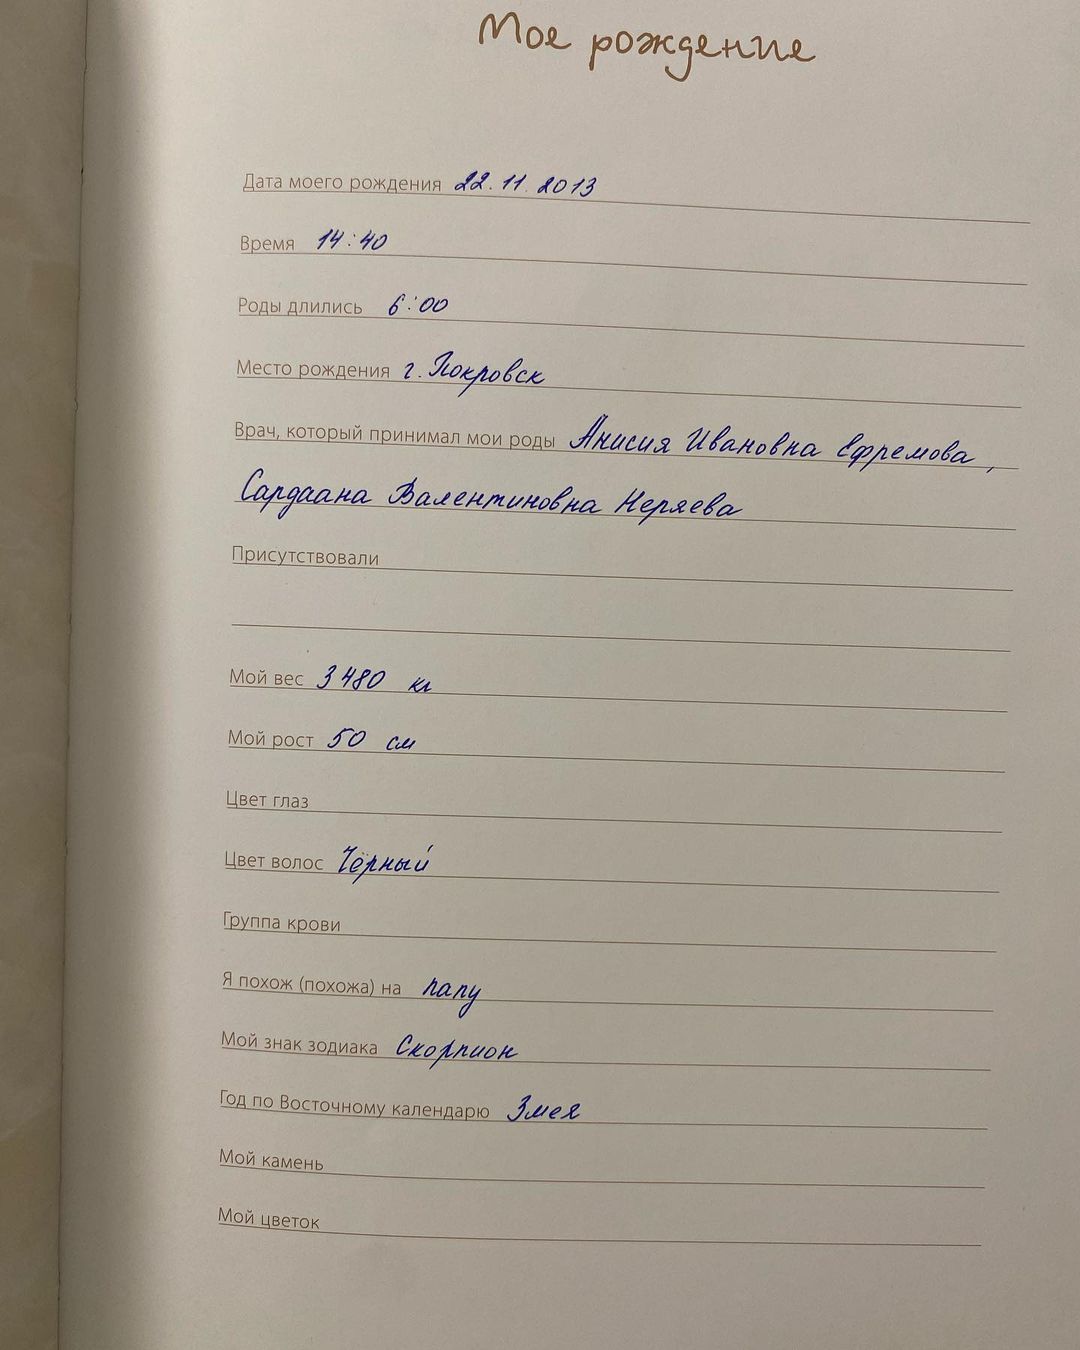 Мое рождение
Дата моего рождения 22.11.2013
Время 14:40
Роды длились 6:00
Место рождения г. Покровск
Врач, который принимал мои роды Анисия Ивановна Ефремова,
Сардаана Валентиновна Неряева
Присутствовали
Мой вес 3480 кг
Мой рост 50 см
Цвет глаз
Цвет волос Чёрный
Группа крови
Я похож (похожа) на папу
Мой знак зодиака Скорпион
Год по Восточному календарю Змея
Мой камень
Мой цветок